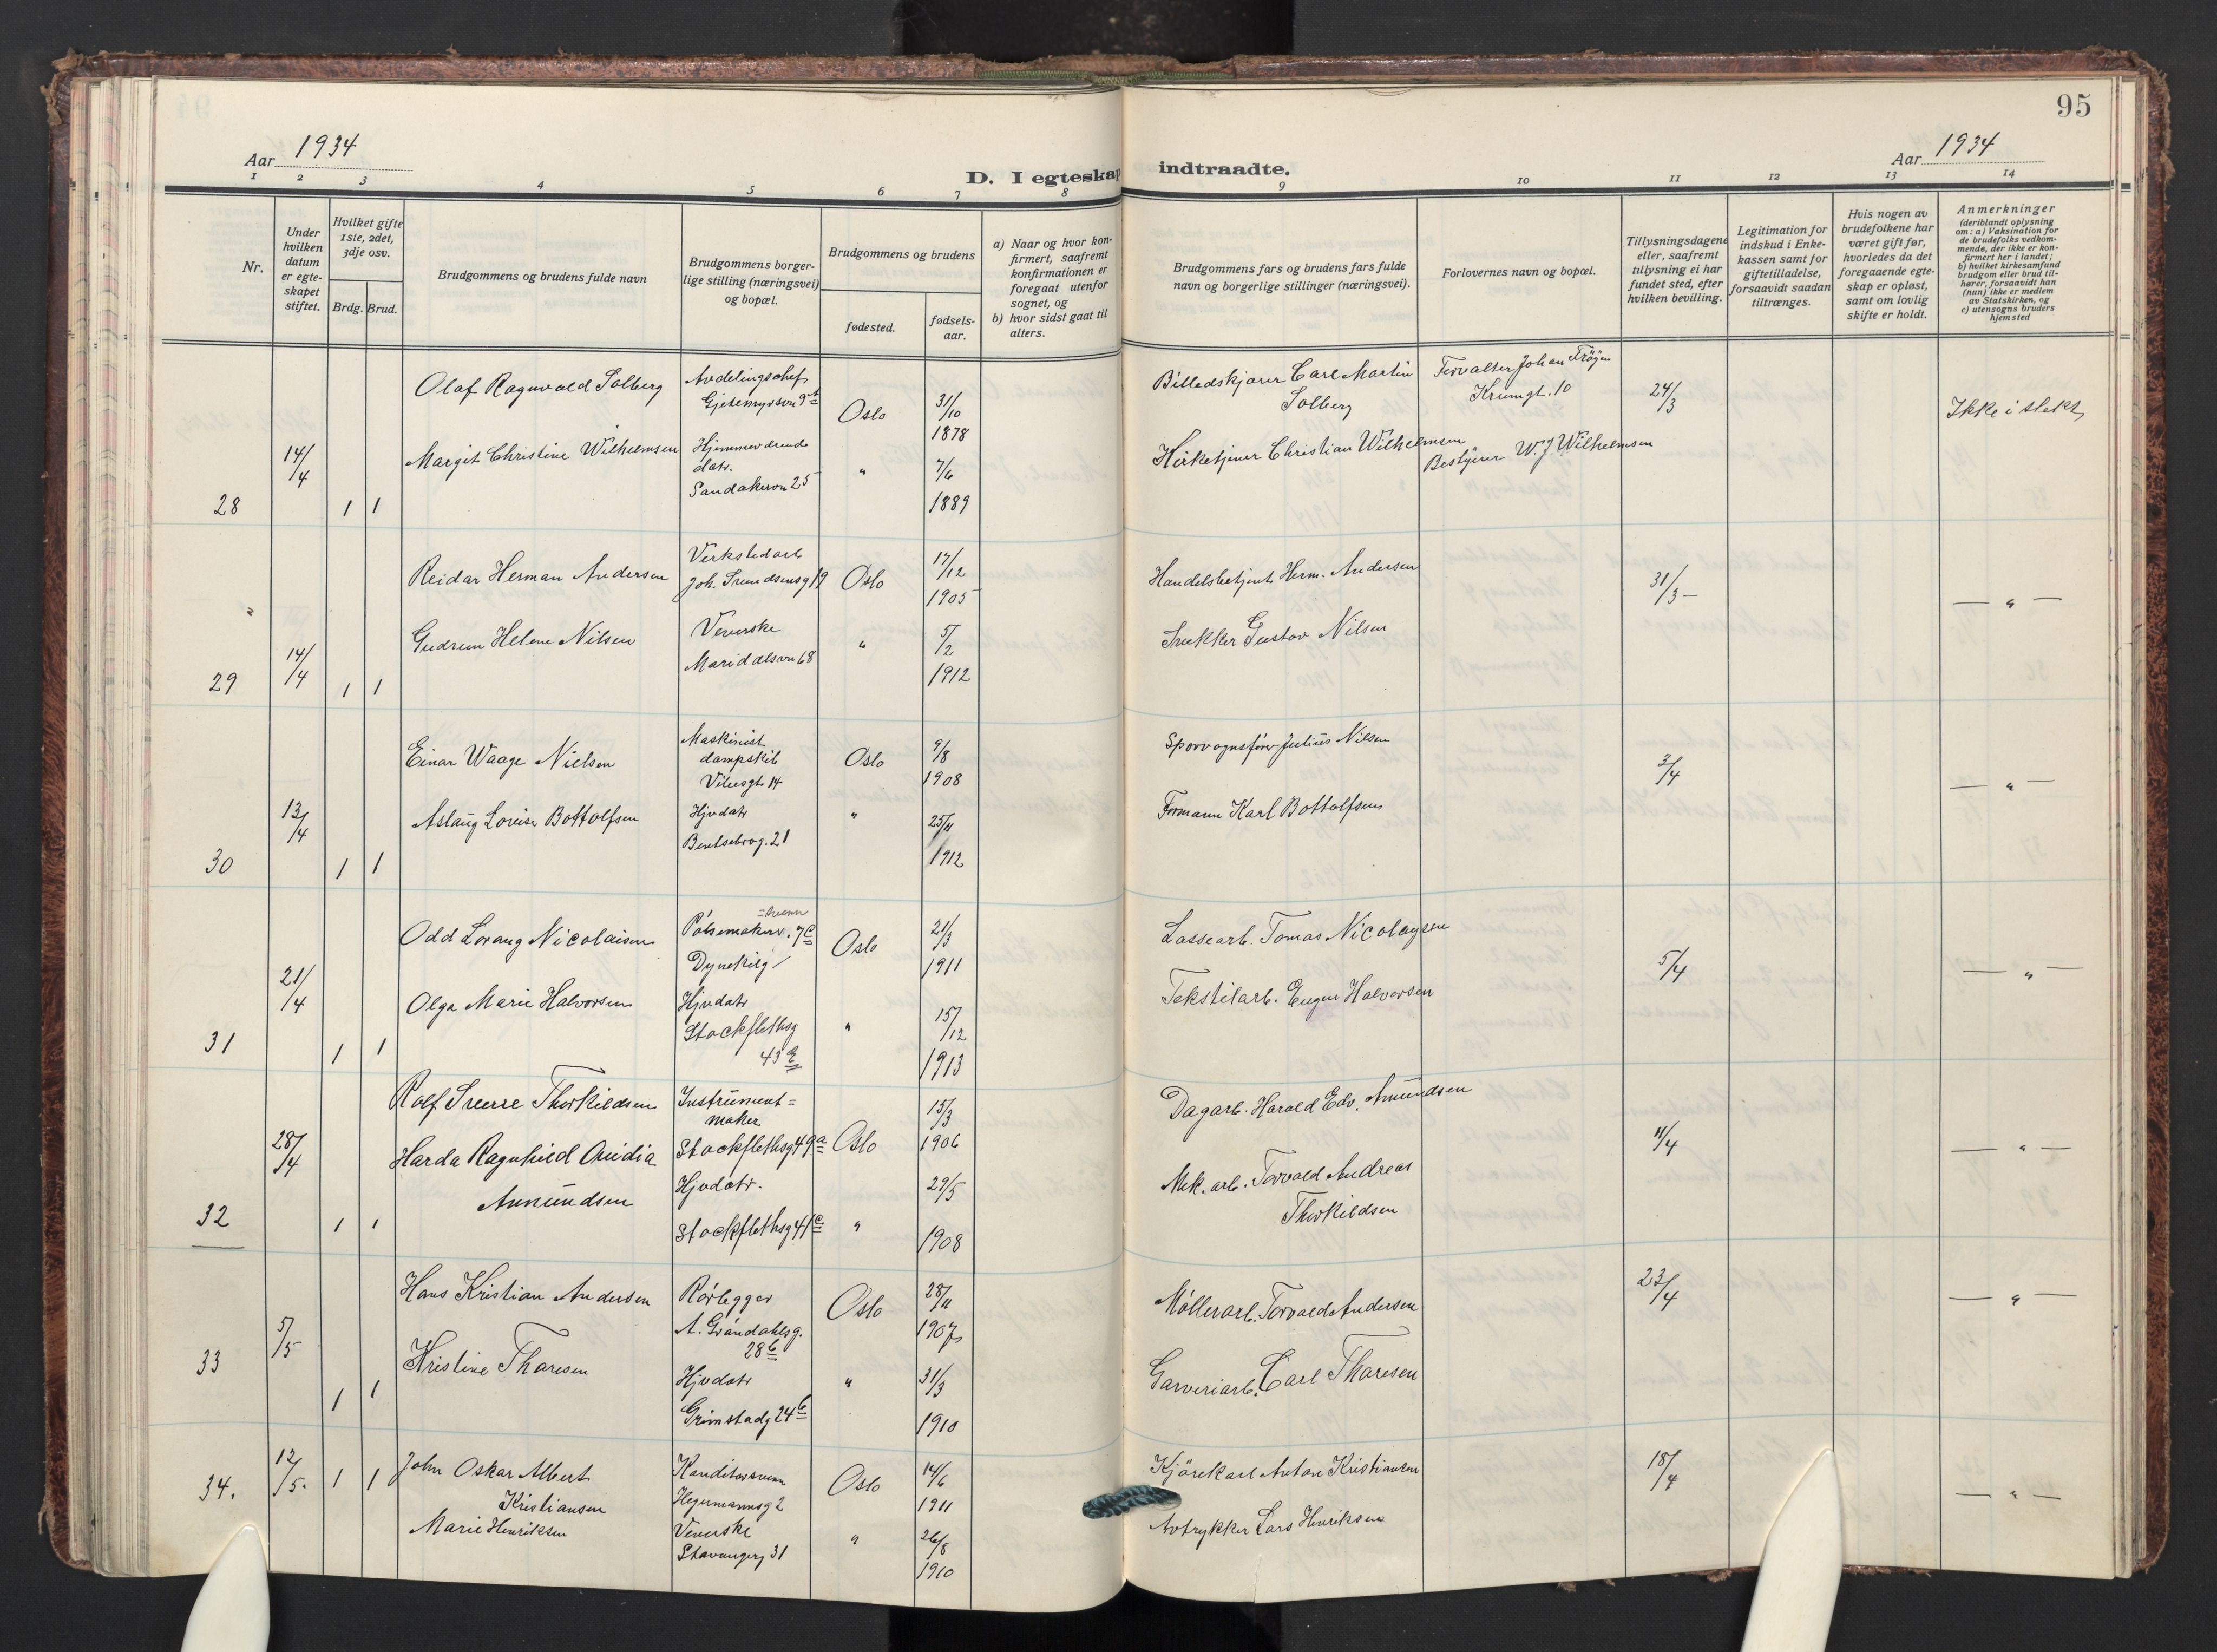 95
Aar 1934
D. I egteskap indtraadte.
Aar 1934
1 2 3 4 5 6 7 8 9 10 11 12 13 14
Nr.
Under hvilken datum er egteskapet stiftet.
Hvilket gifte 1ste, 2det, 3dje osv.
Brdg. Brud.
Brudgommens og brudens fulde navn
Brudgommens borgerlige stilling (næringsvei) og bopæl.
Brudgommens og brudens
fødested.
fødselsaar.
a) Naar og hvor konfirmert, saafremt konfirmationen er foregaat utenfor sognet, og
b) hvor sidst gaat til alters.
Brudgommens fars og brudens fars fulde navn og borgerlige stillinger (næringsvei).
Forlovernes navn og bopæl.
Tillysningsdagene eller, saafremt tillysning ei har fundet sted, efter hvilken bevilling.
Legitimation for indskud i Enkekassen samt for giftetilladelse, forsaavidt saadan tiltrænges.
Hvis nogen av brudefolkene har været gift før, hvorledes da det foregaaende egteskap er opløst, samt om lovlig skifte er holdt.
Anmerkninger
(deriblandt oplysning om: a) Vaksination for de brudefolks vedkommende, der ikke er konfirmert her i landet; b) hvilket kirkesamfund brudgom eller brud tilhører, forsaavidt han (hun) ikke er medlem av Statskirken, og c) utensogns bruders hjemsted
28 14/4 1 1
Olaf Ragnvald Solberg
Avdelingschef
Gjetemyrsvn 9
Oslo
31/10
1878
Billedskjærer Carl Martin
Solberg
Forvalter Johan Frøyen
Krumgt. 10
24/3
Ikke i slekt
Margit Christine Wilhelmsen
Hjemmeværende
datr.
Sandakervn 25
"
7/6
1889
Kirketjener Christian Wilhelmsen
Bestyrer W. J. Wilhelmsen
29 14/4 1 1
Reidar Herman Andersen
Verkstedarb
Joh. Svendsensg 19
Oslo
17/12
1905
Handelsbetjent Herm. Andersen
31/3 —
— " —
Gudrun Helene Nilsen
Veverske
Maridalsvn 68
"
5/2
1912
Snekker Gustav Nilsen
30 13/4 1 1
Einar Waage Nielsen
Maskinist
dampskib
Vibesgt. 14
Oslo
9/8
1908
Sporvognsfører Julius Nilsen
3/4
— " —
Aslaug Lovise Bottolfsen
Hjvdatr
Bentsebrog. 21
"
25/11
1912
Formann Karl Bottolfsen
31 21/4 1 1
Odd Lorang Nicolaisen
=svenn
Pølsemaker. 7 c
Dynekilg
Oslo
21/3
1911
Lossearb. Tomas Nicolaysen
5/4
— " —
Olga Marie Halvorsen
Hjvdatr
Stockflethsg
43
"
15/12
1913
Tekstilarb. Eugen Halvorsen
32 28/4 1 1
Rolf Sverre Thorkildsen
Instrument=
maker
Stockflethsg 49 a
Oslo
15/3
1906
Dagarb. Harald Edv. Amundsen
11/4
— " —
Harda Ragnhild Ovidia
Amundsen
Hjvdatr.
Stockflethsg 41 c
"
29/5
1908
Mek. arb. Torvald Andreas
Thorkildsen
33 5/5 1 1
Hans Kristian Andersen
Rørlegger
A. Grøndahlsg.
28 b
Oslo
28/11
1907
Møllerarb. Torvald Andersen
23/4
— " —
Kristine Tharesen
Hjvdatr
Grimstadg 24 b
"
31/3
1910
Garveriarb. Carl Tharesen
34. 12/5. 1 1
John Oskar Albert
Kristiansen
Konditorsvenn
Hegermannsg 2
Oslo
14/6
1911
Kjørekarl Anton Kristiansen
18/4
— " —
Marie Henriksen
Veverske
Stavangerg 31
"
26/8
1910
Avtrykker Lars Henriksen